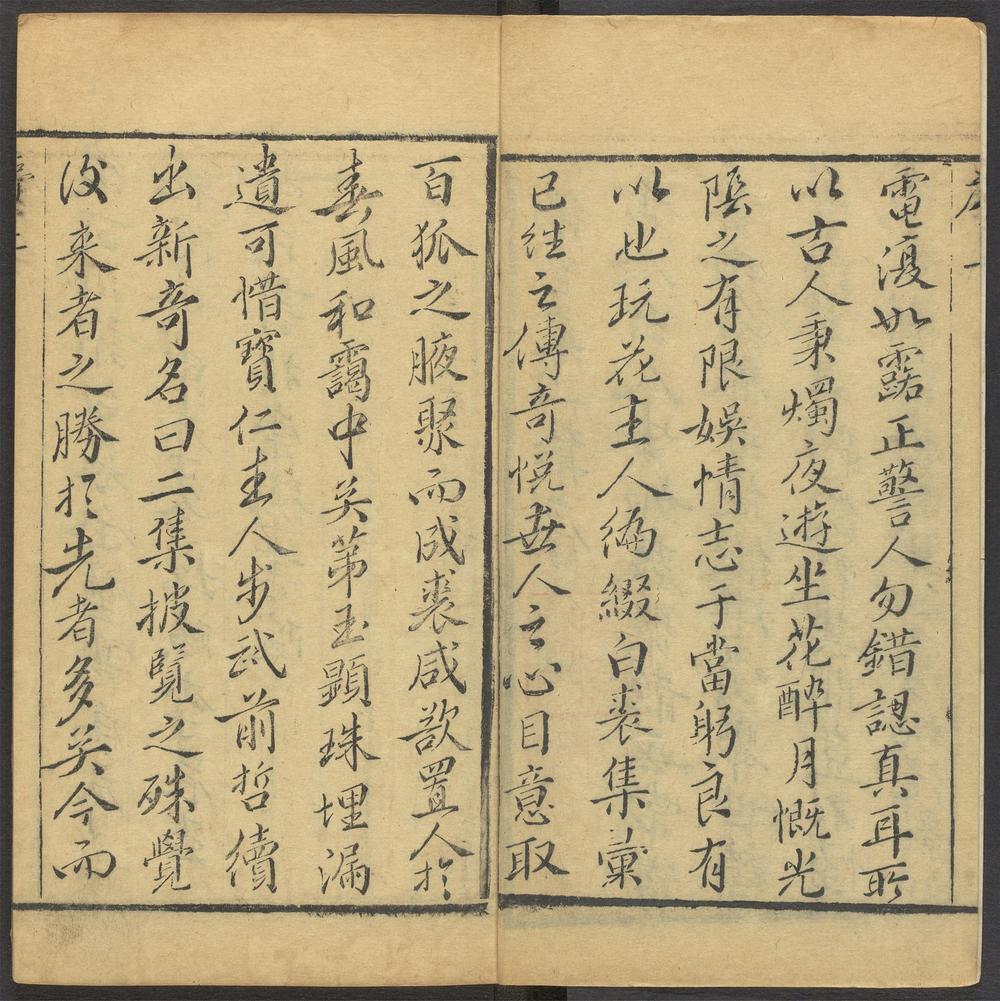 電復如露正警人勿錯認真耳所
以古人秉燭夜遊坐花醉月慨光
陰之有限娛情志于當躬良有
以也玩花主人編綴白裘集彙
已往之傳奇悅世人之心目意取
百狐之腋聚而成裘咸欲置人於
春風和靄中矣第玉顯珠埋漏
遺可惜寶仁主人步武前哲續
出新奇名曰二集披覽之殊覺
後来者之勝於先者多矣今而